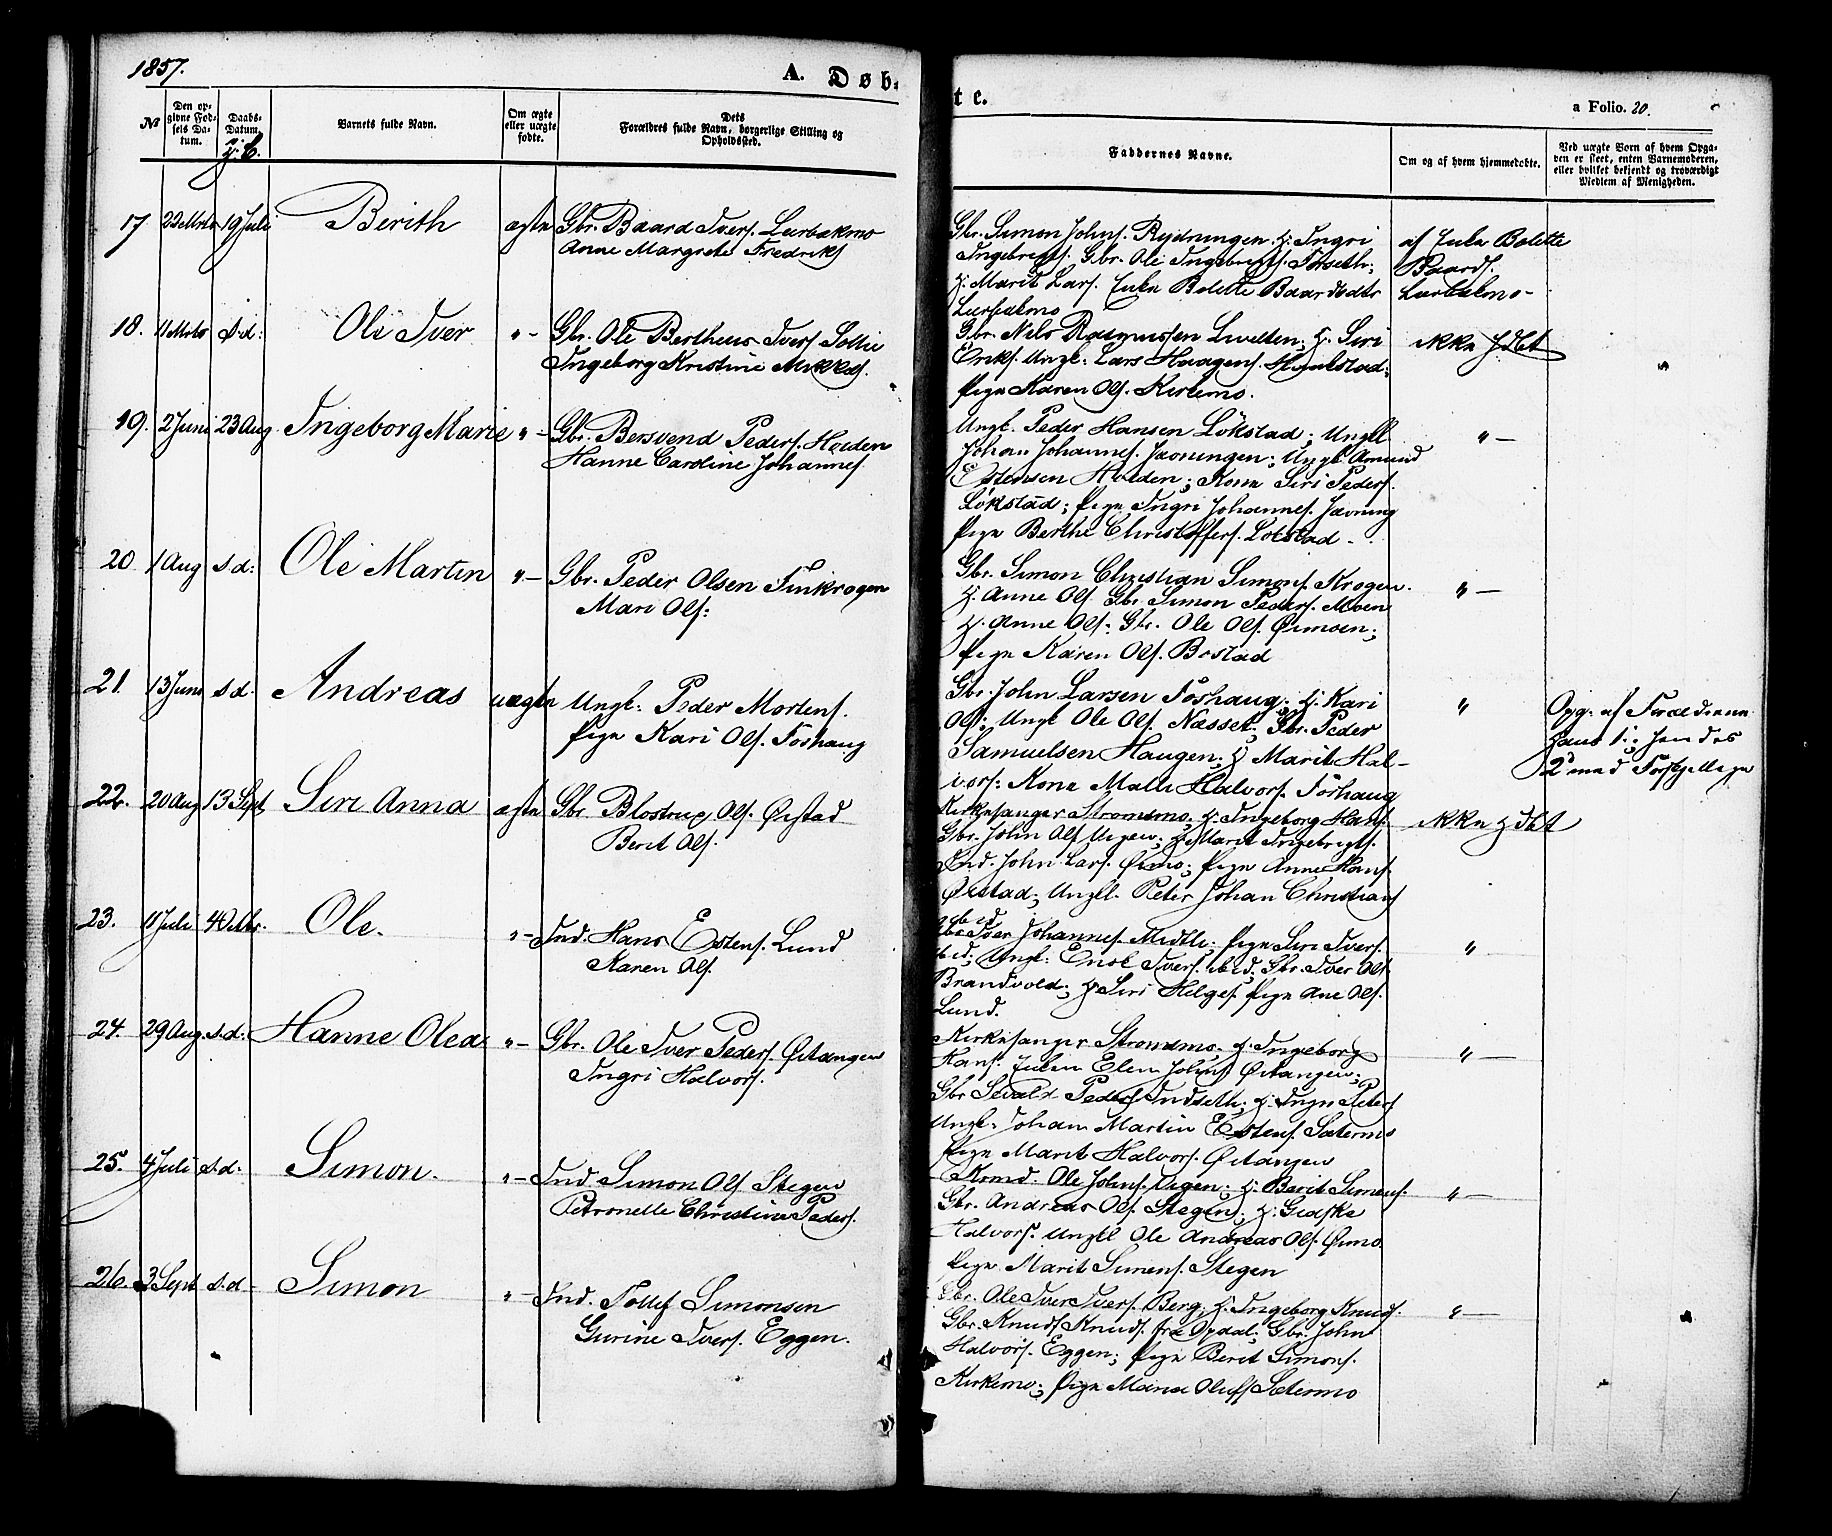 1857.
A. Døb-
te.
a Folio. 20.
№
Den op-
givne Fød-
sels Da-
tum.
Daabs-
Datum.
Barnets fulde Navn.
Om ægte
eller uægte
fødte.
Dets
Forældres fulde Navn, borgerlige Stilling og
Opholdssted.
Faddernes Navne.
Om og af hvem hjemmedøbte.
Ved uægte Børn af hvem Opga-
ven er skeet, enten Barnemoderen,
eller hvilket bekjendt og troværdigt
Medlem af Menigheden.
17 19 Juli Berith ægte Gbr. Baard Ivers. Lurbakmo
Anne Margrete Fredriks
Gbr. Simon Johns. Rydningen. H. Ingri
Ingebrigts. Gbr. Ole Ingebrigts. Forseth;
H. Marit Lars. Julie Bolette Baardsdtr
Lurbakmo
af Julie Bolette
Baards.
Lurbakmo-
18. s.d: Ole Iver "- Gbr. Ole Bertheus Ivers. Sollie
Ingeborg Kristine Mikkels.
Gbr. Nils Rasmussen Lividten; H. Siri
Eriks. Ungk: Lars Haagens.
Pige Karen Ols. Kirkemo.
ikke hdbt
19. 2 Juni 23 Aug. Ingeborg Marie "- Gbr. Bersvend Peders. Holden
Hanne Caroline Johannes.
Ungk. Peder Hansen Løkstad; Ungkl
Johan Johannes. Jævningen; Ungk. Amund
Estensen Holden; Kone Siri Peders.
Løkstad; Pige Ingri Johannes. Jævning
Pige Berthe Christoffers. Løkstad -
"-
20 1 Aug s.d: Ole Martin "- Gbr. Peder Olsen Finkrogen
Mari Ols:
Gbr. Simon Christian Simons. Krogen.
H. Anne Ols. Gbr. Simon Peders. Moen
H. Anne Ols. Gbr. Ole Ols. Ørmoen;
Pige Karen Ols. Brstad
"-
21. 13 Juni s.d. Andreas uægte Ungk: Peder Mortens.
Pige Kari Ols. Forshaug
Gbr. John Larsen Forshaug. H. Kari
Ols; Ungk Ole Ols. Næsset; Gbr. Peder
Samuelsen Haugen; H Marit Hal-
vors: Kone Malli Halvors. Forshaug
"
Opg. af Forældrene
hans 1; hendes
2 med Forskjellige
22. 20 Aug 13 Sept Siri Anna ægte Gbr. Blostrup Ols. Ørstad
Berit Ols.
Kirkesanger Strommo, H. Ingeborg Hans.
Gbr. John Ols Uegen; H. Marit Ingebrigts.
Ind. John Lars. Ørmo; Pige Anne Hans.
Ørstad; Ungkl. Peter Johan Christians
ibid
ikke hdbt
23. 11 Juli 4 Octbr. Ole. "- Ind. Hans Estens. Lund
Karen Ols.
Gbr Iver Johannes. Midtli; Pige Siri Ivers.
ibid; Ungk: Enok Ivers. ibid; Gbr. Iver Ols
Brandvold; H. Siri Helges. Pige Ane Ols.
Lund.
"
24. 29 Aug. s.d: Hanne Olea "- Gbr. Ole Iver Peders. Øitangen
Ingri Halvors.
Kirkesanger Strommo. H. Ingeborg
Hans. Julia Elen Johns. Øitangen;
Gbr Sevald Peders. Indseth; H. Ingri Peters
Ungk. Johan Martin Estens. Sætermo
Pige Marit Halvors. Øitangen
"-
25. 4 Juli s.d. Simon. "- Ind Simon Ols Stegen
Petronelle Christine Peders.
Kvmd. Ole Johns. Vigen; H. Berit Simons.
Gbr. Andreas Ols. Stegen; H. Gidske
Halvors. Ungkl Ole Andreas Ols. Ørmo.
Pige Marit Simens. Stegen
"-
26. 3 Sept s.d- Simon "- Ind. Tollef Simonsen
Gurine Ivers. Eggen.
Gbr. Ole Iver Ivers. Berg, H. Ingeborg Knuds.
Gbr. Knud Knuds. fra Opdal; Gbr. John
Halvors. Eggen; Pige Berit Simons.
Kirkemo; Pige Maria Olufs Sætermo
"-